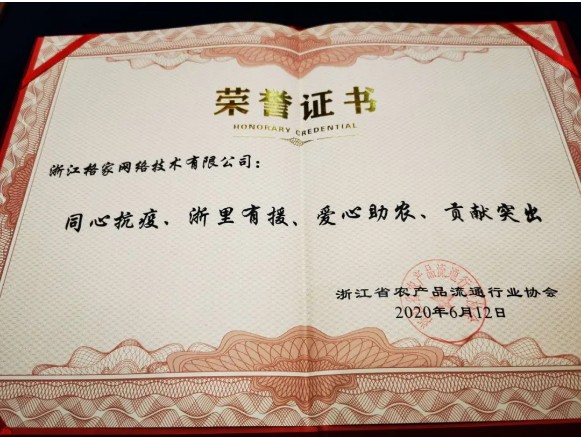 荣誉证书
HONORARY CREDENTIAL
浙江格家网络技术有限公司：
同心抗疫、浙里有援、爱心助农、贡献突出
浙江省农产品流通行业协会
2020年6月12日